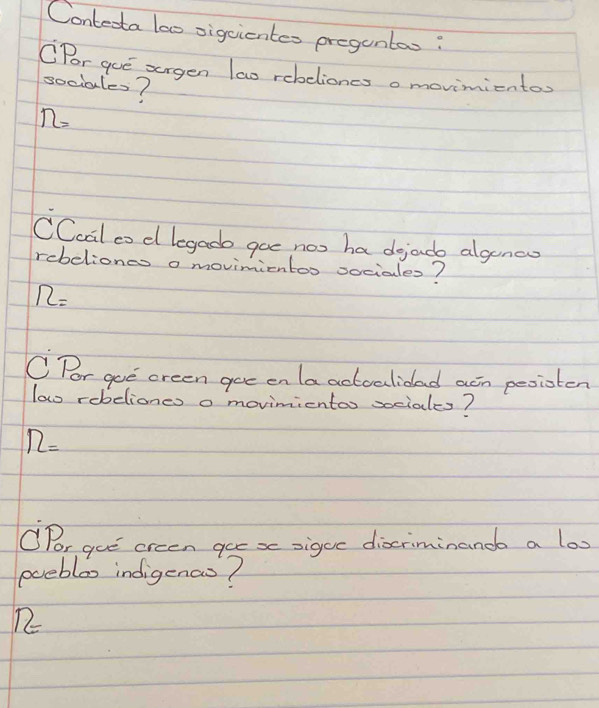 Contesta las siguientes preguntas:
¿Por qué surgen las rebeliones o movimientos
sociales?
R=
¿Cuál es el legado que nos ha dejado algunas
rebeliones o movimientos sociales?
R=
¿Por qué creen que en la actualidad aún pesisten
las rebeliones o movimientos sociales?
R=
¿Por qué creen que se sigue discriminando a los
pueblos indigenas?
R=